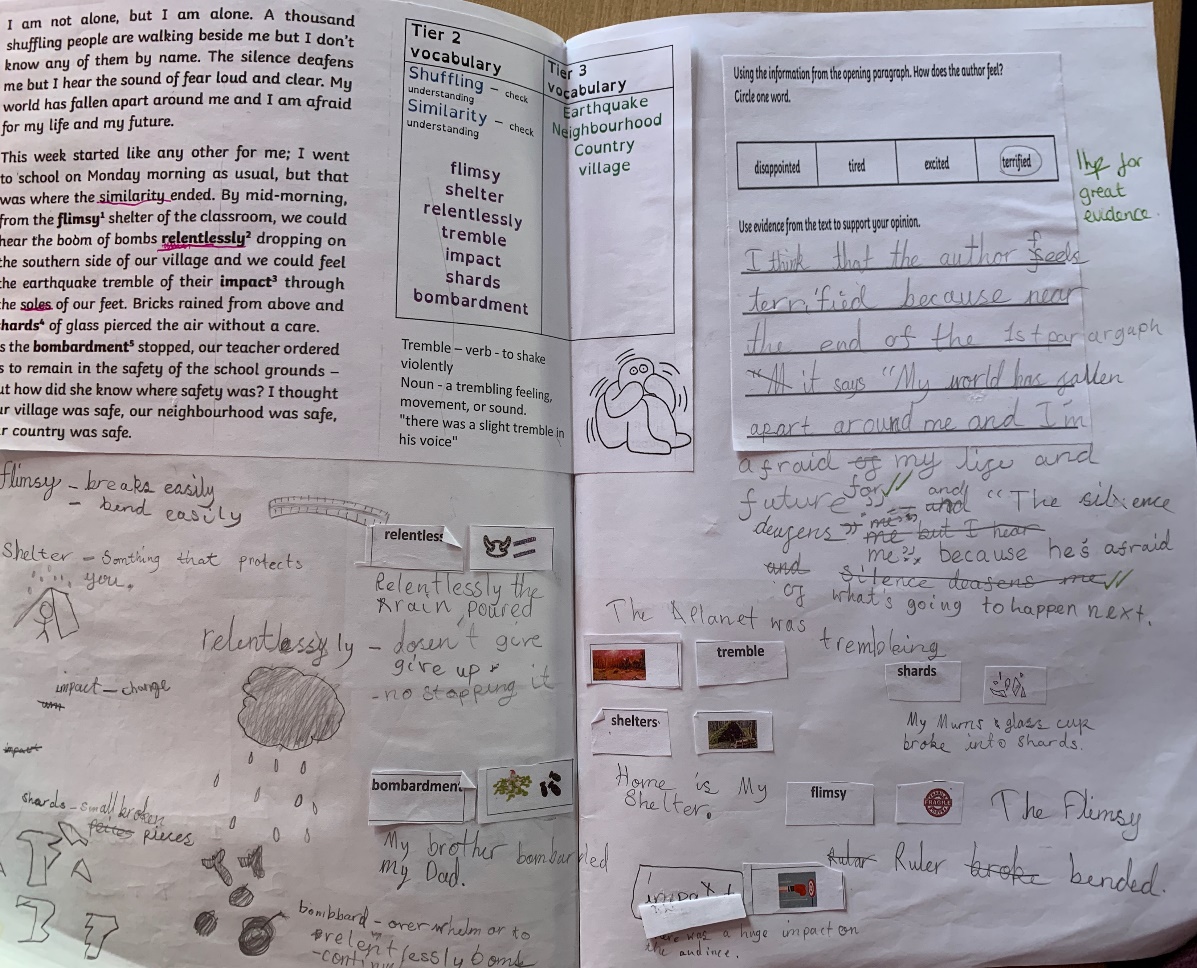 I am not alone, but I am alone. A thousand
shuffling people are walking beside me but I don't
know any of them by name. The silence deafens
me but I hear the sound of fear loud and clear. My
world has fallen apart around me and I am afraid
for my life and my future.
This week started like any other for me; I went
to school on Monday morning as usual, but that
was where the similarity ended. By mid-morning,
from the flimsy¹ shelter of the classroom, we could
hear the boom of bombs relentlessly² dropping on
the southern side of our village and we could feel
the earthquake tremble of their impact³ through
the soles of our feet. Bricks rained from above and
hards⁴ of glass pierced the air without a care.
s the bombardment⁵ stopped, our teacher ordered
s to remain in the safety of the school grounds –
ut how did she know where safety was? I thought
ur village was safe, our neighbourhood was safe,
r country was safe.
Tier 2
vocabulary
Shuffling – check
understanding
Similarity – check
understanding
flimsy
shelter
relentlessly
tremble
impact
shards
bombardment
Tier 3
vocabulary
Earthquake
Neighbourhood
Country
village
Tremble – verb - to shake
violently
Noun - a trembling feeling,
movement, or sound.
"there was a slight tremble in
his voice"
flimsy – breaks easily
- bend easily
Shelter – Somthing that protects
you.
relentlessly – dosen't give
give up
- no stopping it
impact – change
impact
shards – small broken
pieces
relentless
Relentlessly the
rain poured
bombardment
My brother bombarded
my Dad.
bombbard – overwhelm or to
relentlessly bomb
Using the information from the opening paragraph. How does the author feel?
Circle one word.
disappointed
tired
excited
terrified
1hp for
great
evidence.
Use evidence from the text to support your opinion.
I think that the author feels
terrified because near
the end of the 1st parargaph
it says "My world has fallen
apart around me and I'm
afraid of for my life and
future" and and "The silence
deafens me" me but I hear
me", because he's afraid
and silence deafens me
of what's going to happen next.
The planet was
trembleing
tremble
shards
My Mums glass cup
broke into shards.
shelters
Home is My
Shelter.
flimsy
FRAGILE
The Flimsy
Ruler broke bended.
was a huge impact on
the audince.